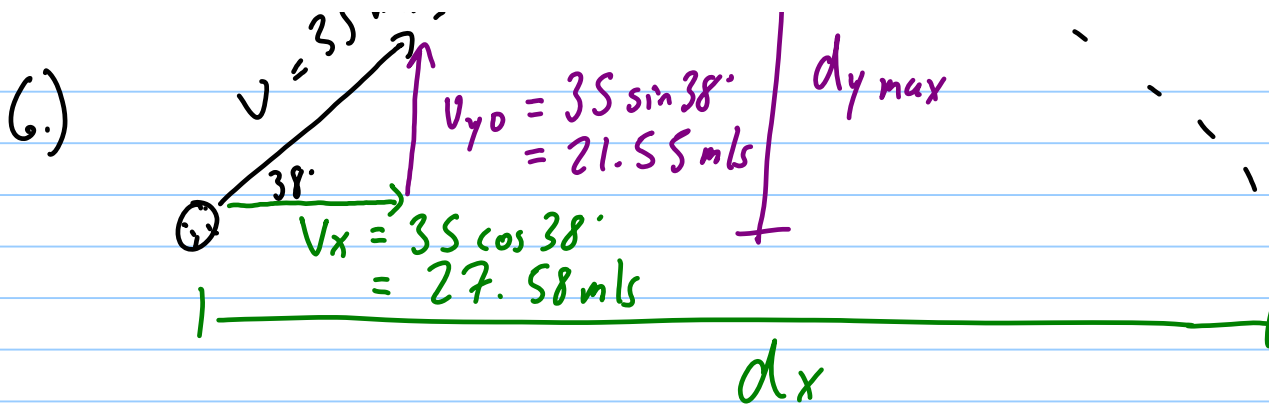 6.)
V = 35
38°
Vyo = 35 sin38°
= 21.55 m/s
dy max
Vx = 35 cos 38°
= 27.58 m/s
dx